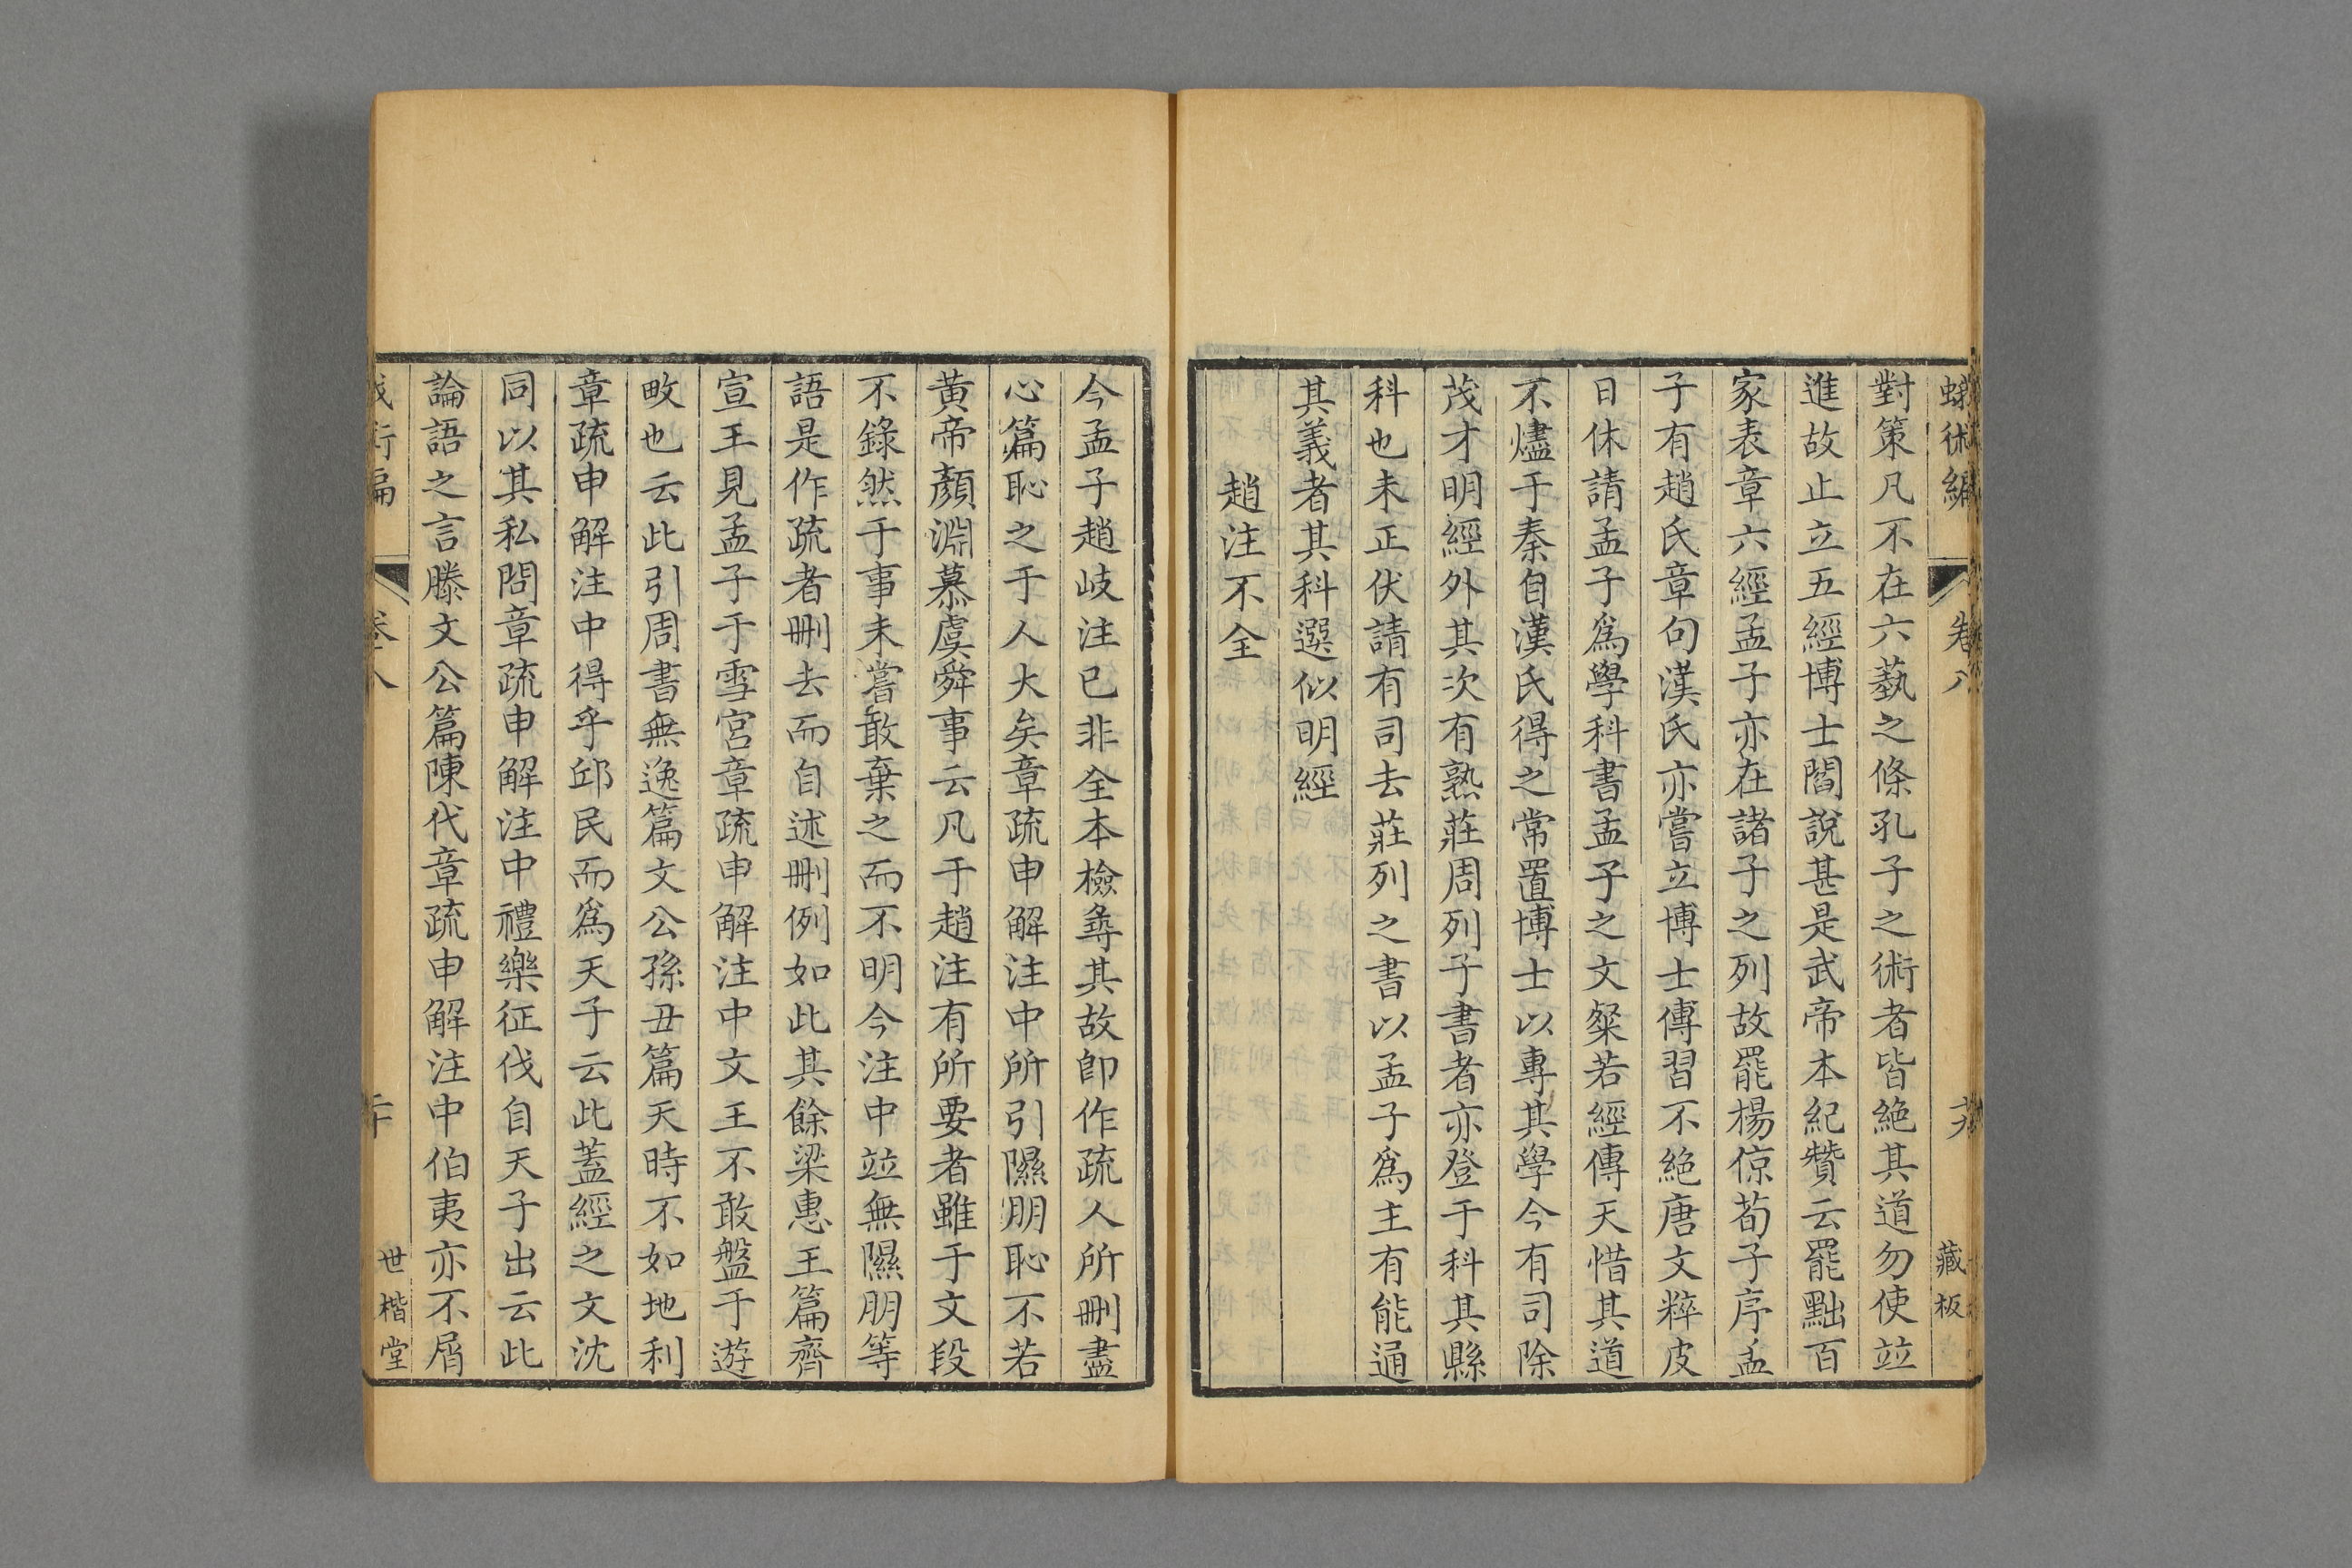 蛾術編 卷八 藏板
對策凡不在六藝之條孔子之術者皆絶其道勿使竝
進故止立五經博士閻說甚是武帝本紀贊云罷黜百
家表章六經孟子亦在諸子之列故罷楊倞荀子序孟
子有趙氏章句漢氏亦嘗立博士傳習不絶唐文粹皮
日休請孟子爲學科書孟子之文粲若經傳天惜其道
不燼于秦自漢氏得之常置博士以專其學今有司除
茂才明經外其次有熟莊周列子書者亦登于科其縣
科也未正伏請有司去莊列之書以孟子爲主有能通
其義者其科選似明經
趙注不全
今孟子趙岐注已非全本檢尋其故卽作疏人所刪盡
心篇恥之于人大矣章疏申解注中所引隰朋恥不若
黄帝顏淵慕虞舜事云凡于趙注有所要者雖于文段
不錄然于事未嘗敢棄之而不明今注中竝無隰朋等
語是作疏者刪去而自述刪例如此其餘梁惠王篇齊
宣王見孟子于雪宮章疏申解注中文王不敢盤于遊
畋也云此引周書無逸篇文公孫丑篇天時不如地利
章疏申解注中得乎邱民而爲天子云此蓋經之文沈
同以其私問章疏申解注中禮樂征伐自天子出云此
論語之言滕文公篇陳代章疏申解注中伯夷亦不屑
術編 卷八 二十 世楷堂